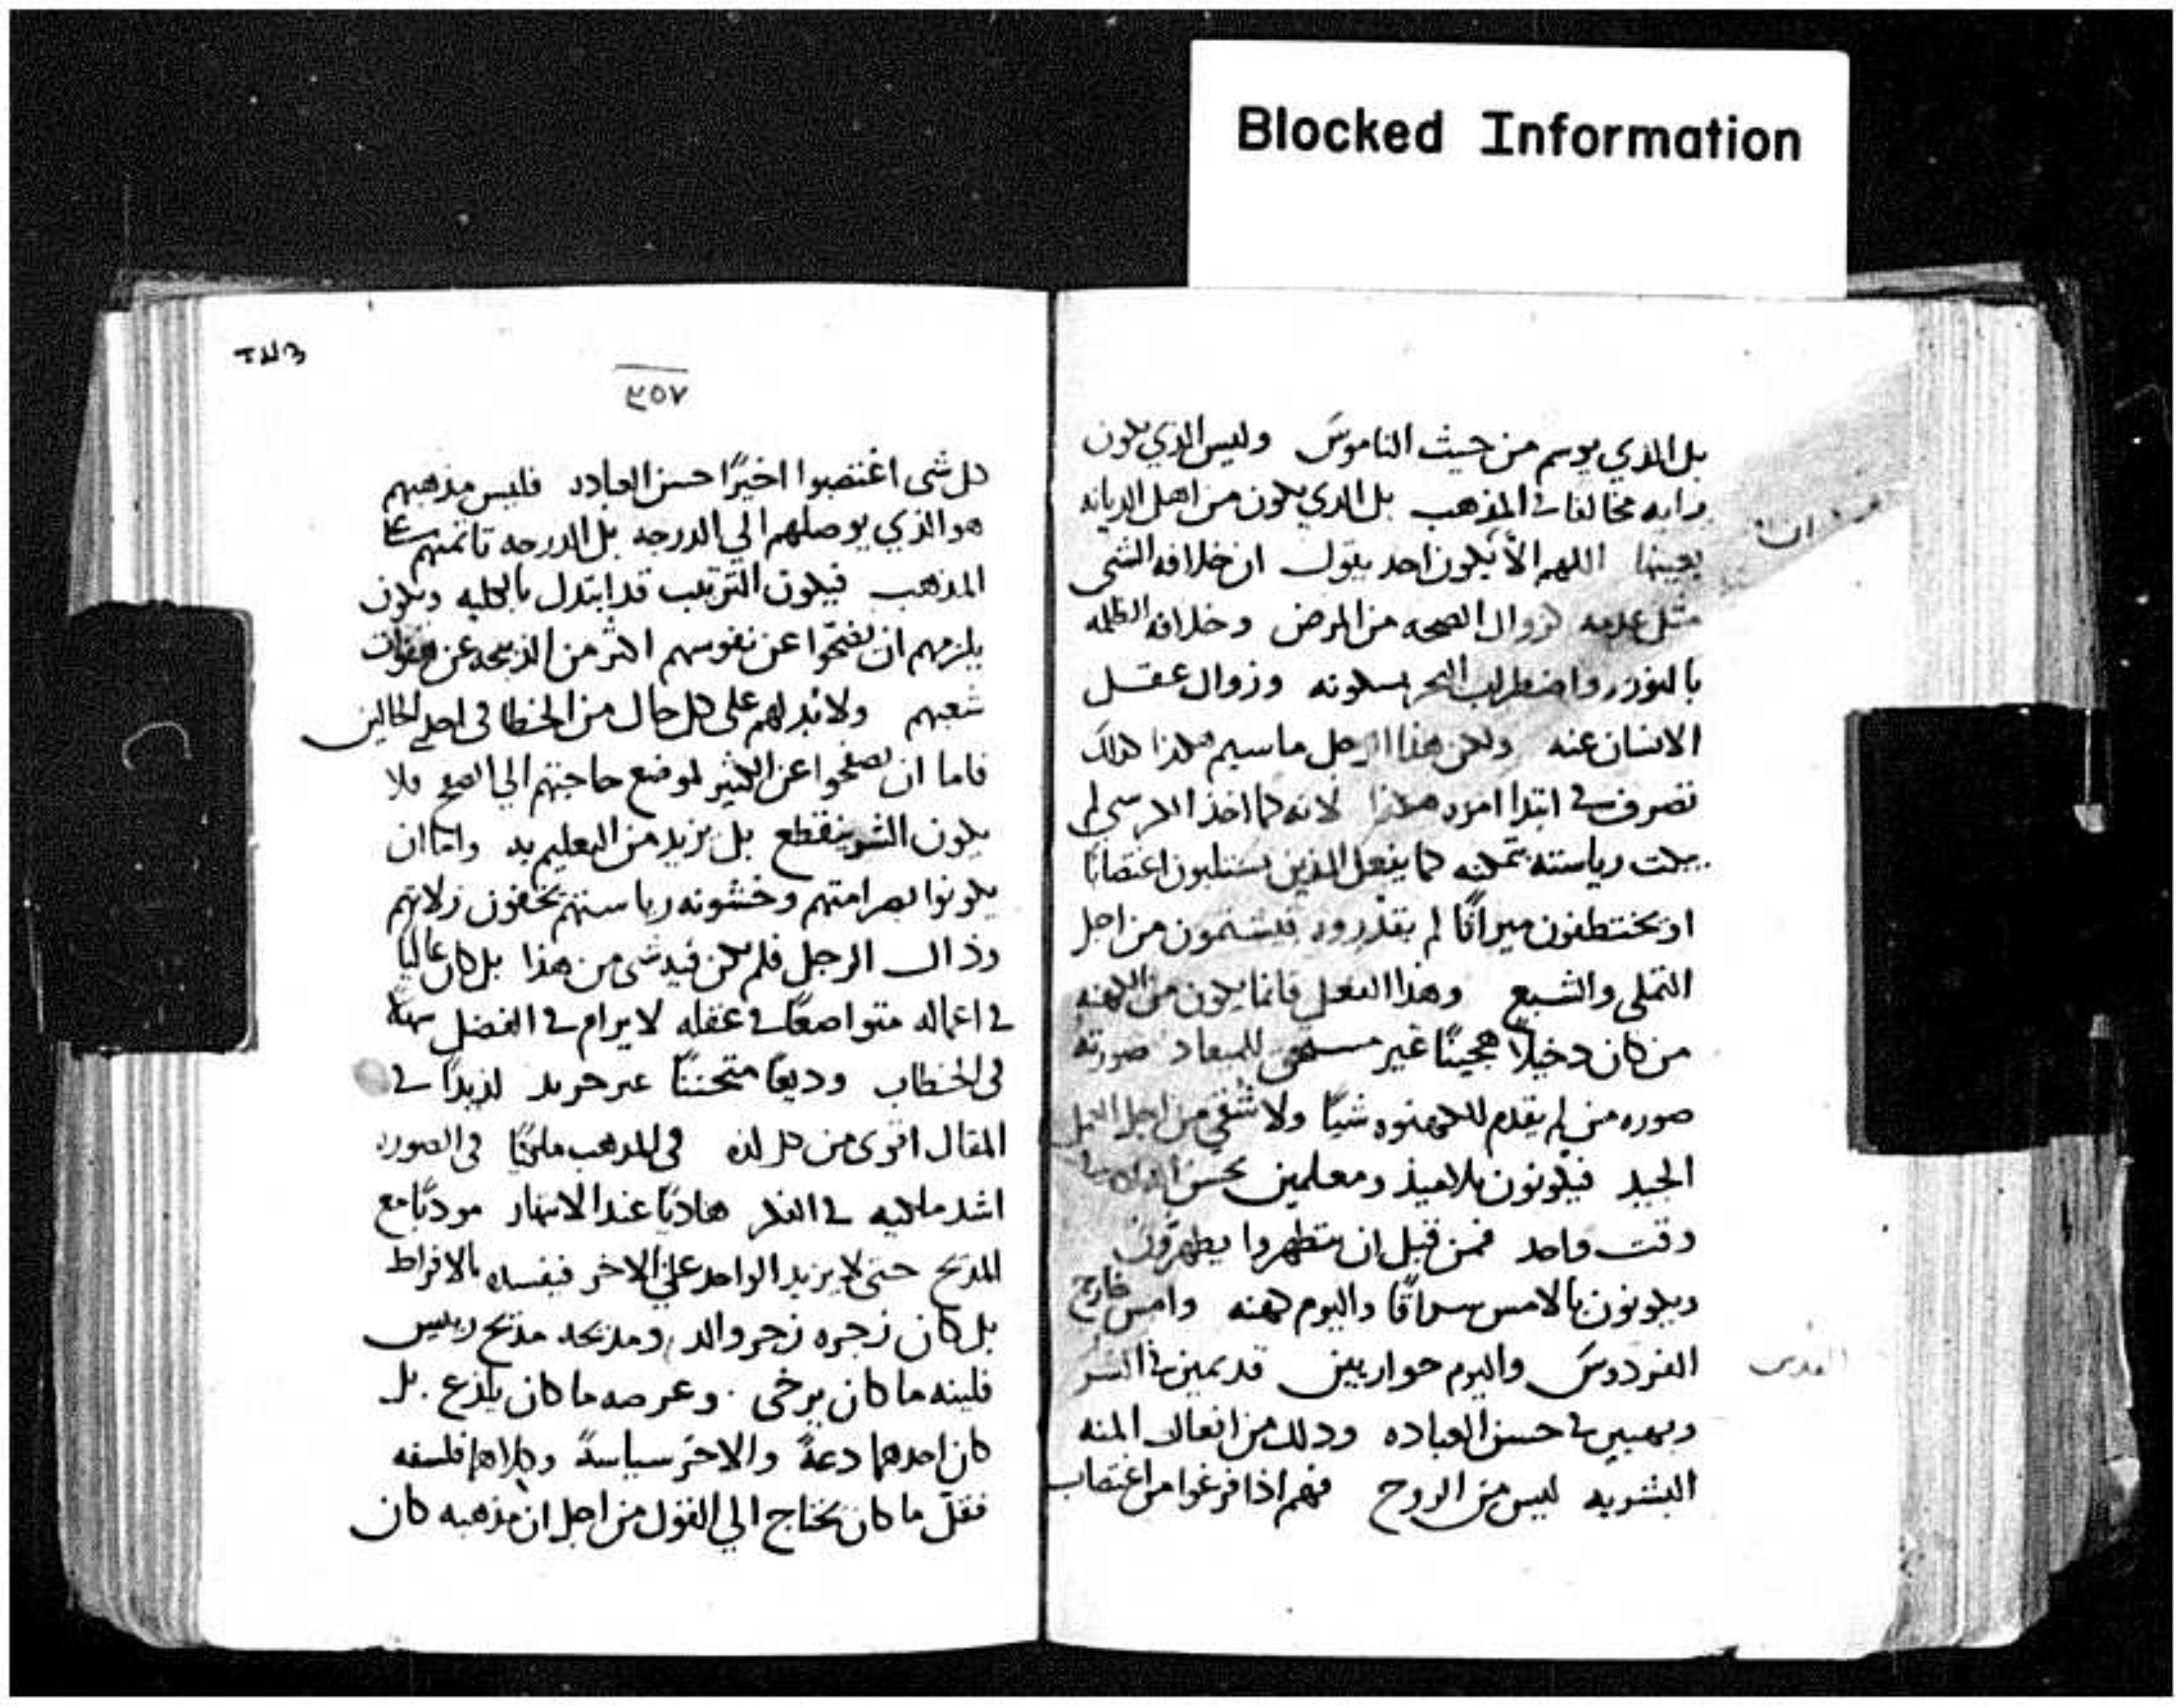 Blocked Information
بل الدي يوسم من حيث الناموس وليس الذي يكون
رايه مخالفا في المذهب بل الدي يكون من اهل الديانه
بعينها اللهم الا يكون احد يقول ان خلافه الشي
مثل عدمه كزوال الصحه من المرض وخلافه الظلمه
بالنور واضطراب البحر بسكونه وزوال عقل
الانسان عنه ولكن هذا الرجل ما سيم هكذا كذلك
تصرف في ابتدا امره هكذا لانه لما اخذ الكرسي لم
رياسته كما يفعل الذين يستلبون اغتصابا
او يختطفون ميراثا لم يقدروه فيشتمون من اجل
التملي والشبع وهذا الفعل فانما يكون من الكهنه
من كان دخيلا هجينا غير مستحق للميعاد صورته
صوره من لم يقدم للكهنوه شيا ولا شقي من اجل
الجيد فيكونون تلاميذ ومعلمين بحسن
وقت واحد فمن قبل ان يتطهروا يطهرون
ويكونون بالامس سراقا واليوم كهنه وامس خارج
الفردوس واليوم حواريين قديمين في الشر
في حسن العباده ودلك من افعال المنه
البشريه ليس من الروح فهم اذا فرغوا من اغتصاب
القدس
٣٥٧
كل شي اغتصبوا اخيرًا حسن العباده فليس مذهبهم
هو الذي يوصلهم الي الدرجه بل الدرجه تاتمنهم على
المذهب فيكون الترتيب قد ابتدل بالكليه ويكون
يلزمهم ان يضحوا عن نفوسهم اكثر من الذبيحه عن هفوات
شعبهم ولا بد لهم على كل حال من الخطا في احدي الحالين
فاما ان يصفحوا عن الكثير لموضع حاجتهم الي الصفح فلا
يكون الشر ينقطع بل يزيد من التعليم به واما ان
يكونوا بصرامتهم وخشونه رياستهم يخفون زلاتهم
وذاك الرجل فلم يكن فيه شي من هذا بل كان عاليا
في اعماله متواضعًا في عقله لا يرام في الفضل سهلا
في الخطاب وديعًا متحننًا غير حريد لذيذًا في
المقال اقوى من كل لذه في المذهب ملكيًا في الصوره
اشد ملكيه في الفكر هاديًا عند الانتهار مودبًا مع
المديح حتى لا يزيد الواحد على الاخر فيفسده بالافراط
بل كان زجره زجر والد ومديحه مديح رييس
فلينه ما كان يرخى وعرصه ما كان يلذع بل
كان احدهما دعةً والاخر سياسةً وكلاهما فلسفه
فقل ما كان يحتاج الي القول من اجل ان مذهبه كان